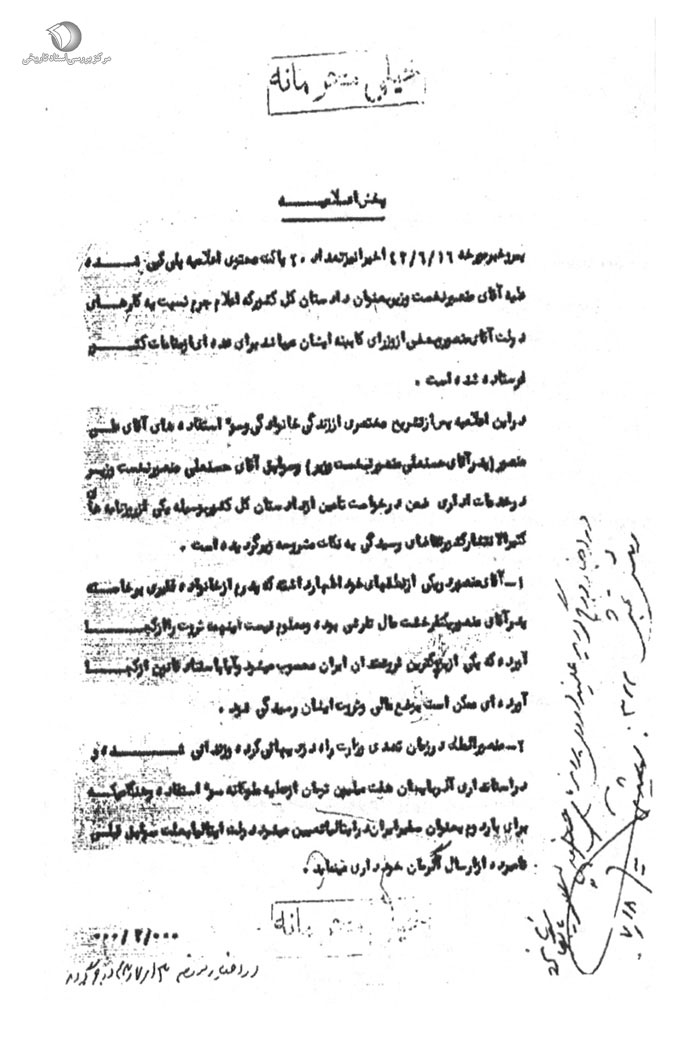 مرکز بررسی اسناد تاریخی
خیلی محرمانه
پخش اعلامیه
پیرو خبر مورخه ۴۳/۶/۱۶ اخیرا نیز تعداد ۲۰ پاکت محتوی اعلامیه پلی کپی شده
علیه آقای منصور نخست وزیر بعنوان دادستان کل کشور که اعلام جرم نسبت به کارهای
دولت آقای منصور و بعضی از وزرای کابینه ایشان میباشد برای عده ای از مقامات کشور
فرستاده شده است .
در این اعلامیه پس از تشریح مختصری از زندگی خانوادگی و سوء استفاده های آقای علی
منصور (پدر آقای حسنعلی منصور نخست وزیر) و سوابق آقای حسنعلی منصور نخست وزیر
در خدمات اداری ضمن درخواست تامین از دادستان کل کشور بوسیله یکی از روزنامه های
کثیرالانتشار کشور تقاضای رسیدگی به نکات مشروحه زیر گردیده است .
۱ــ آقای منصور در یکی از نطقهای خود اظهار داشته که پدرم از خانواده فقیری برخاسته
پدر آقای منصور یکنفر خشت مال تفرشی بوده و معلوم نیست اینهمه ثروت را از کجا
آورده که یکی از بزرگترین ثروتمندان ایران محسوب میشود و آیا با استناد قانون از کجا
آورده ای ممکن است بوضع مالی و ثروت ایشان رسیدگی شود .
۲ــ منصورالملک در زمان تصدی وزارت راه دزدیهائی کرده و زندانی شده و
در استانداری آذربایجان هفت میلیون تومان از عطیه ملوکانه سوء استفاده و هنگامیکه
برای بار دوم بعنوان سفیر ایران در ایتالیا تعیین میشود دولت ایتالیا بعلت سوابق قبلی
نامبرده از ارسال اگرمان خودداری مینماید .
خیلی محرمانه
۰۰۰/۲/۰۰۰